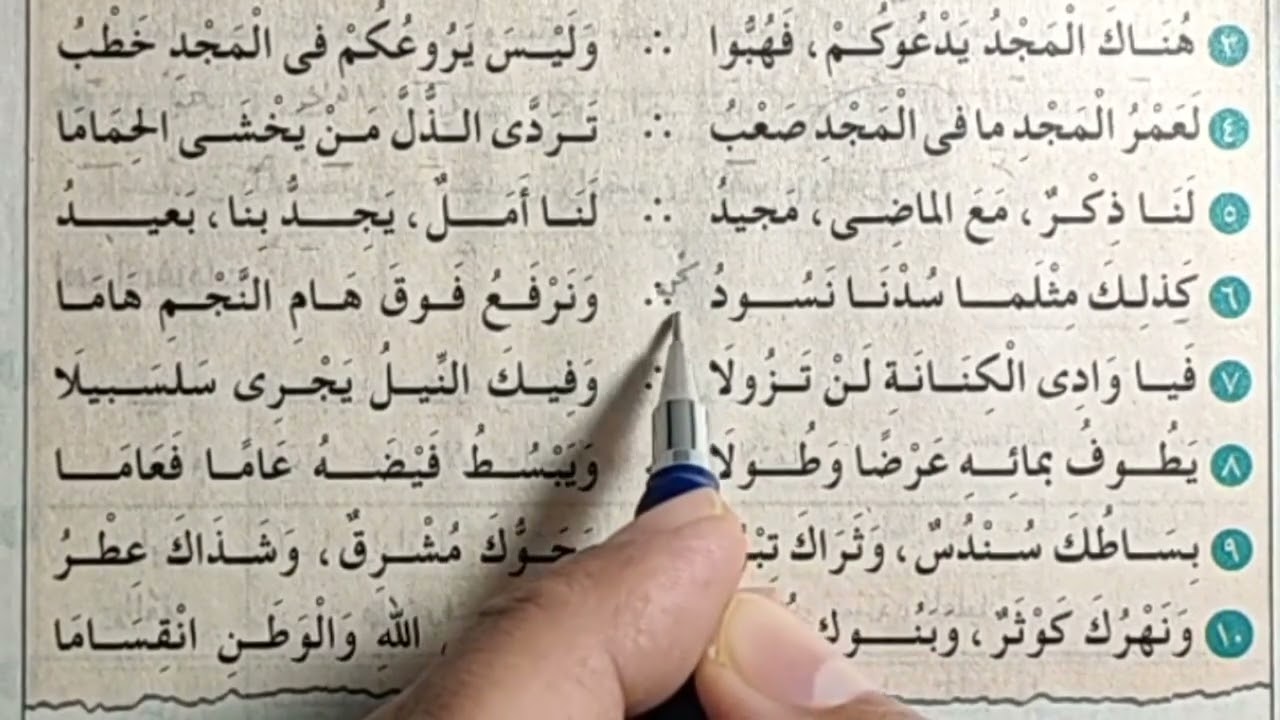 ٣ هُنَـاكَ الْمَجْدُ يَدْعُوكُـمْ، فَهُبُّوا ∴ وَلَيْـسَ يَرُوعُكُمْ فى الْمَجْدِ خَطْبُ
٤ لَعَمْرُ الْمَجْدِ ما فى الْمَجْدِ صَعْبُ ∴ تَـرَدَّى الـذُّلَّ مَـنْ يَخْشَـى الحِمَامَا
٥ لَنَـا ذِكْـرٌ، مَعَ الماضِـى، مَجيدُ ∴ لَنَـا أَمَـلٌ، يَجِـدُّ بِنَا، بَعيـدُ
٦ كَذلِـكَ مِثْلَمـا سُدْنَـا نَسُـودُ ∴ وَنَرْفَـعُ فَـوقَ هَـامِ النَّجْـمِ هَامَـا
٧ فَيـا وَادِى الْكِنَـانَـةِ لَـنْ تَـزُولَا ∴ وَفِيـكَ النِّيـلُ يَجْـرِى سَلسَـبيلَا
٨ يَطُـوفُ بمائِـهِ عَرْضًـا وَطُـولَا وَيَبْسُـطُ فَيْضَـهُ عَامًـا فَعَامَـا
٩ بِسَـاطُكَ سُـنْدُسٌ، وَثَرَاكَ مُشْـرِقٌ، وَشَـذَاكَ عِطْـرُ
١٠ وَنَهْرُكَ كَوْثَرٌ، اللهِ وَالْوَطَـنِ انْقِسَـامَا